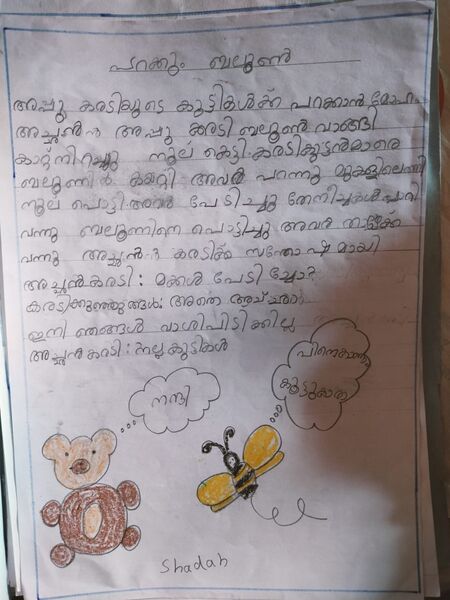 പറക്കും ബലൂൺ
അപ്പു കരടിയുടെ കുട്ടികൾക്ക് പറക്കാൻ മോഹം
അച്ഛൻ അപ്പു കരടി ബലൂൺ വാങ്ങി
കാറ്റ് നിറച്ചു നൂല് കെട്ടി കരടികുട്ടൻമാരെ
ബലൂണിൽ കയറ്റി അവർ പറന്നു മുകളിലെത്തി
നൂല് പൊട്ടി അവർ പേടിച്ചു തേനീച്ചകൾ പാറി
വന്നു ബലൂണിനെ പൊട്ടിച്ചു അവർ താഴേക്ക്
വന്നു അച്ഛൻ കരടിക്ക് സന്തോഷമായി
അച്ഛൻകരടി: മക്കൾ പേടിച്ചോ?
കരടിക്കുഞ്ഞുങ്ങൾ: അതെ അച്ഛാ
ഇനി ഞങ്ങൾ വാശിപിടിക്കില്ല
അച്ഛൻകരടി: നല്ലകുട്ടികൾ
നന്ദി
കൂട്ടുകാരെ
Shadah